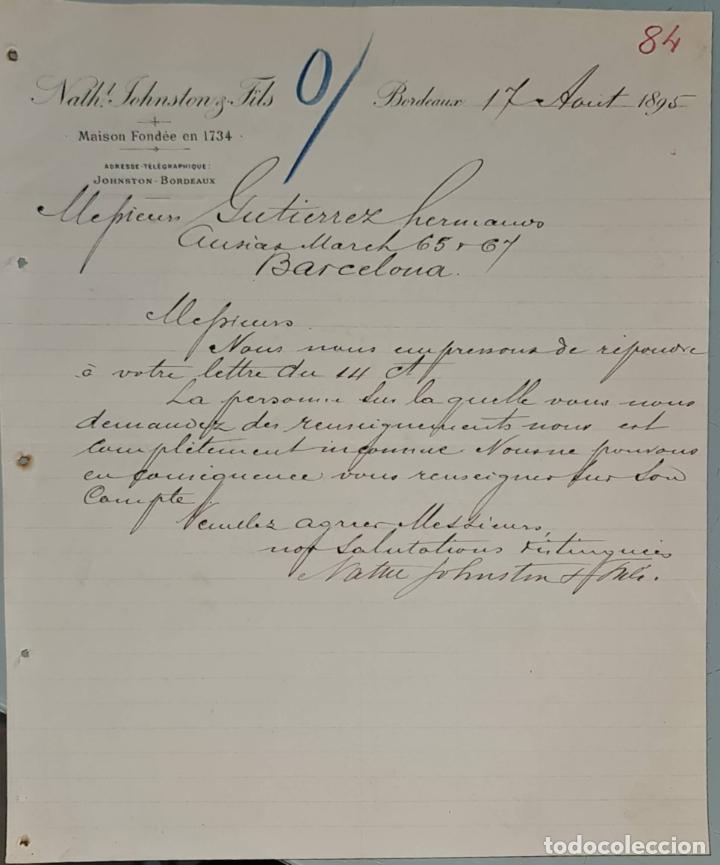 84
Nath.ˡ Johnston & Fils
Bordeaux 17 Aout 1895
Maison Fondée en 1734
ADRESSE TÉLÉGRAPHIQUE:
JOHNSTON-BORDEAUX
Messieurs Gutierrez hermanos
Ausias March 65 & 67
Barcelona.
Messieurs
Nous nous empressons de répondre
à votre lettre du 14 Ct
La personne sur laquelle vous nous
demandez des renseignements nous est
complètement inconnue Nous ne pouvons
en conséquence vous renseigner sur son
Compte.
Veuillez agréer Messieurs,
nos salutations distinguées
Nath Johnston & Fils.
todocoleccion